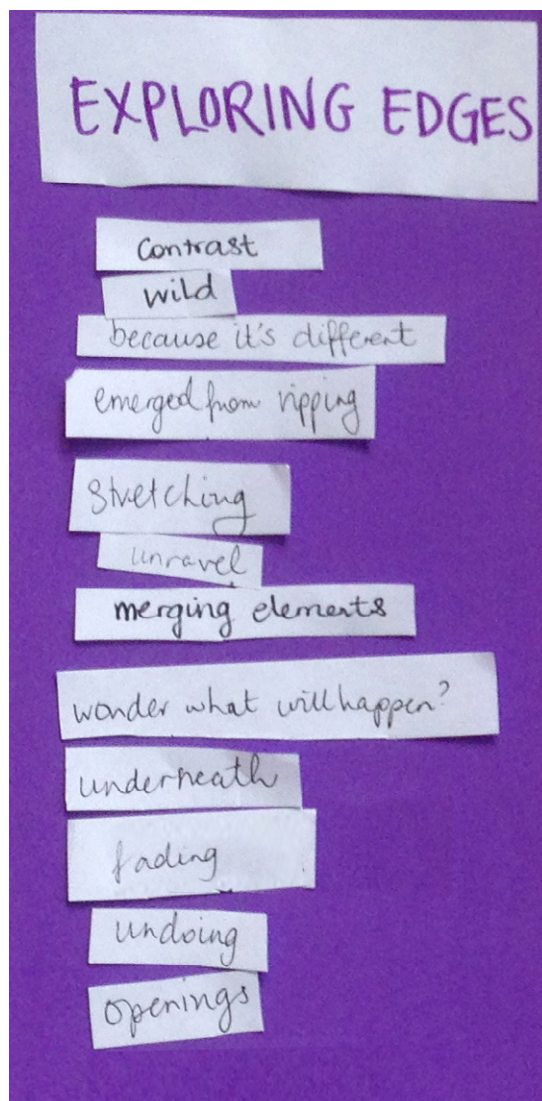 EXPLORING EDGES
Contrast
wild
because it's different
emerged from ripping
Stretching
unravel
merging elements
wonder what will happen?
underneath
fading
undoing
openings